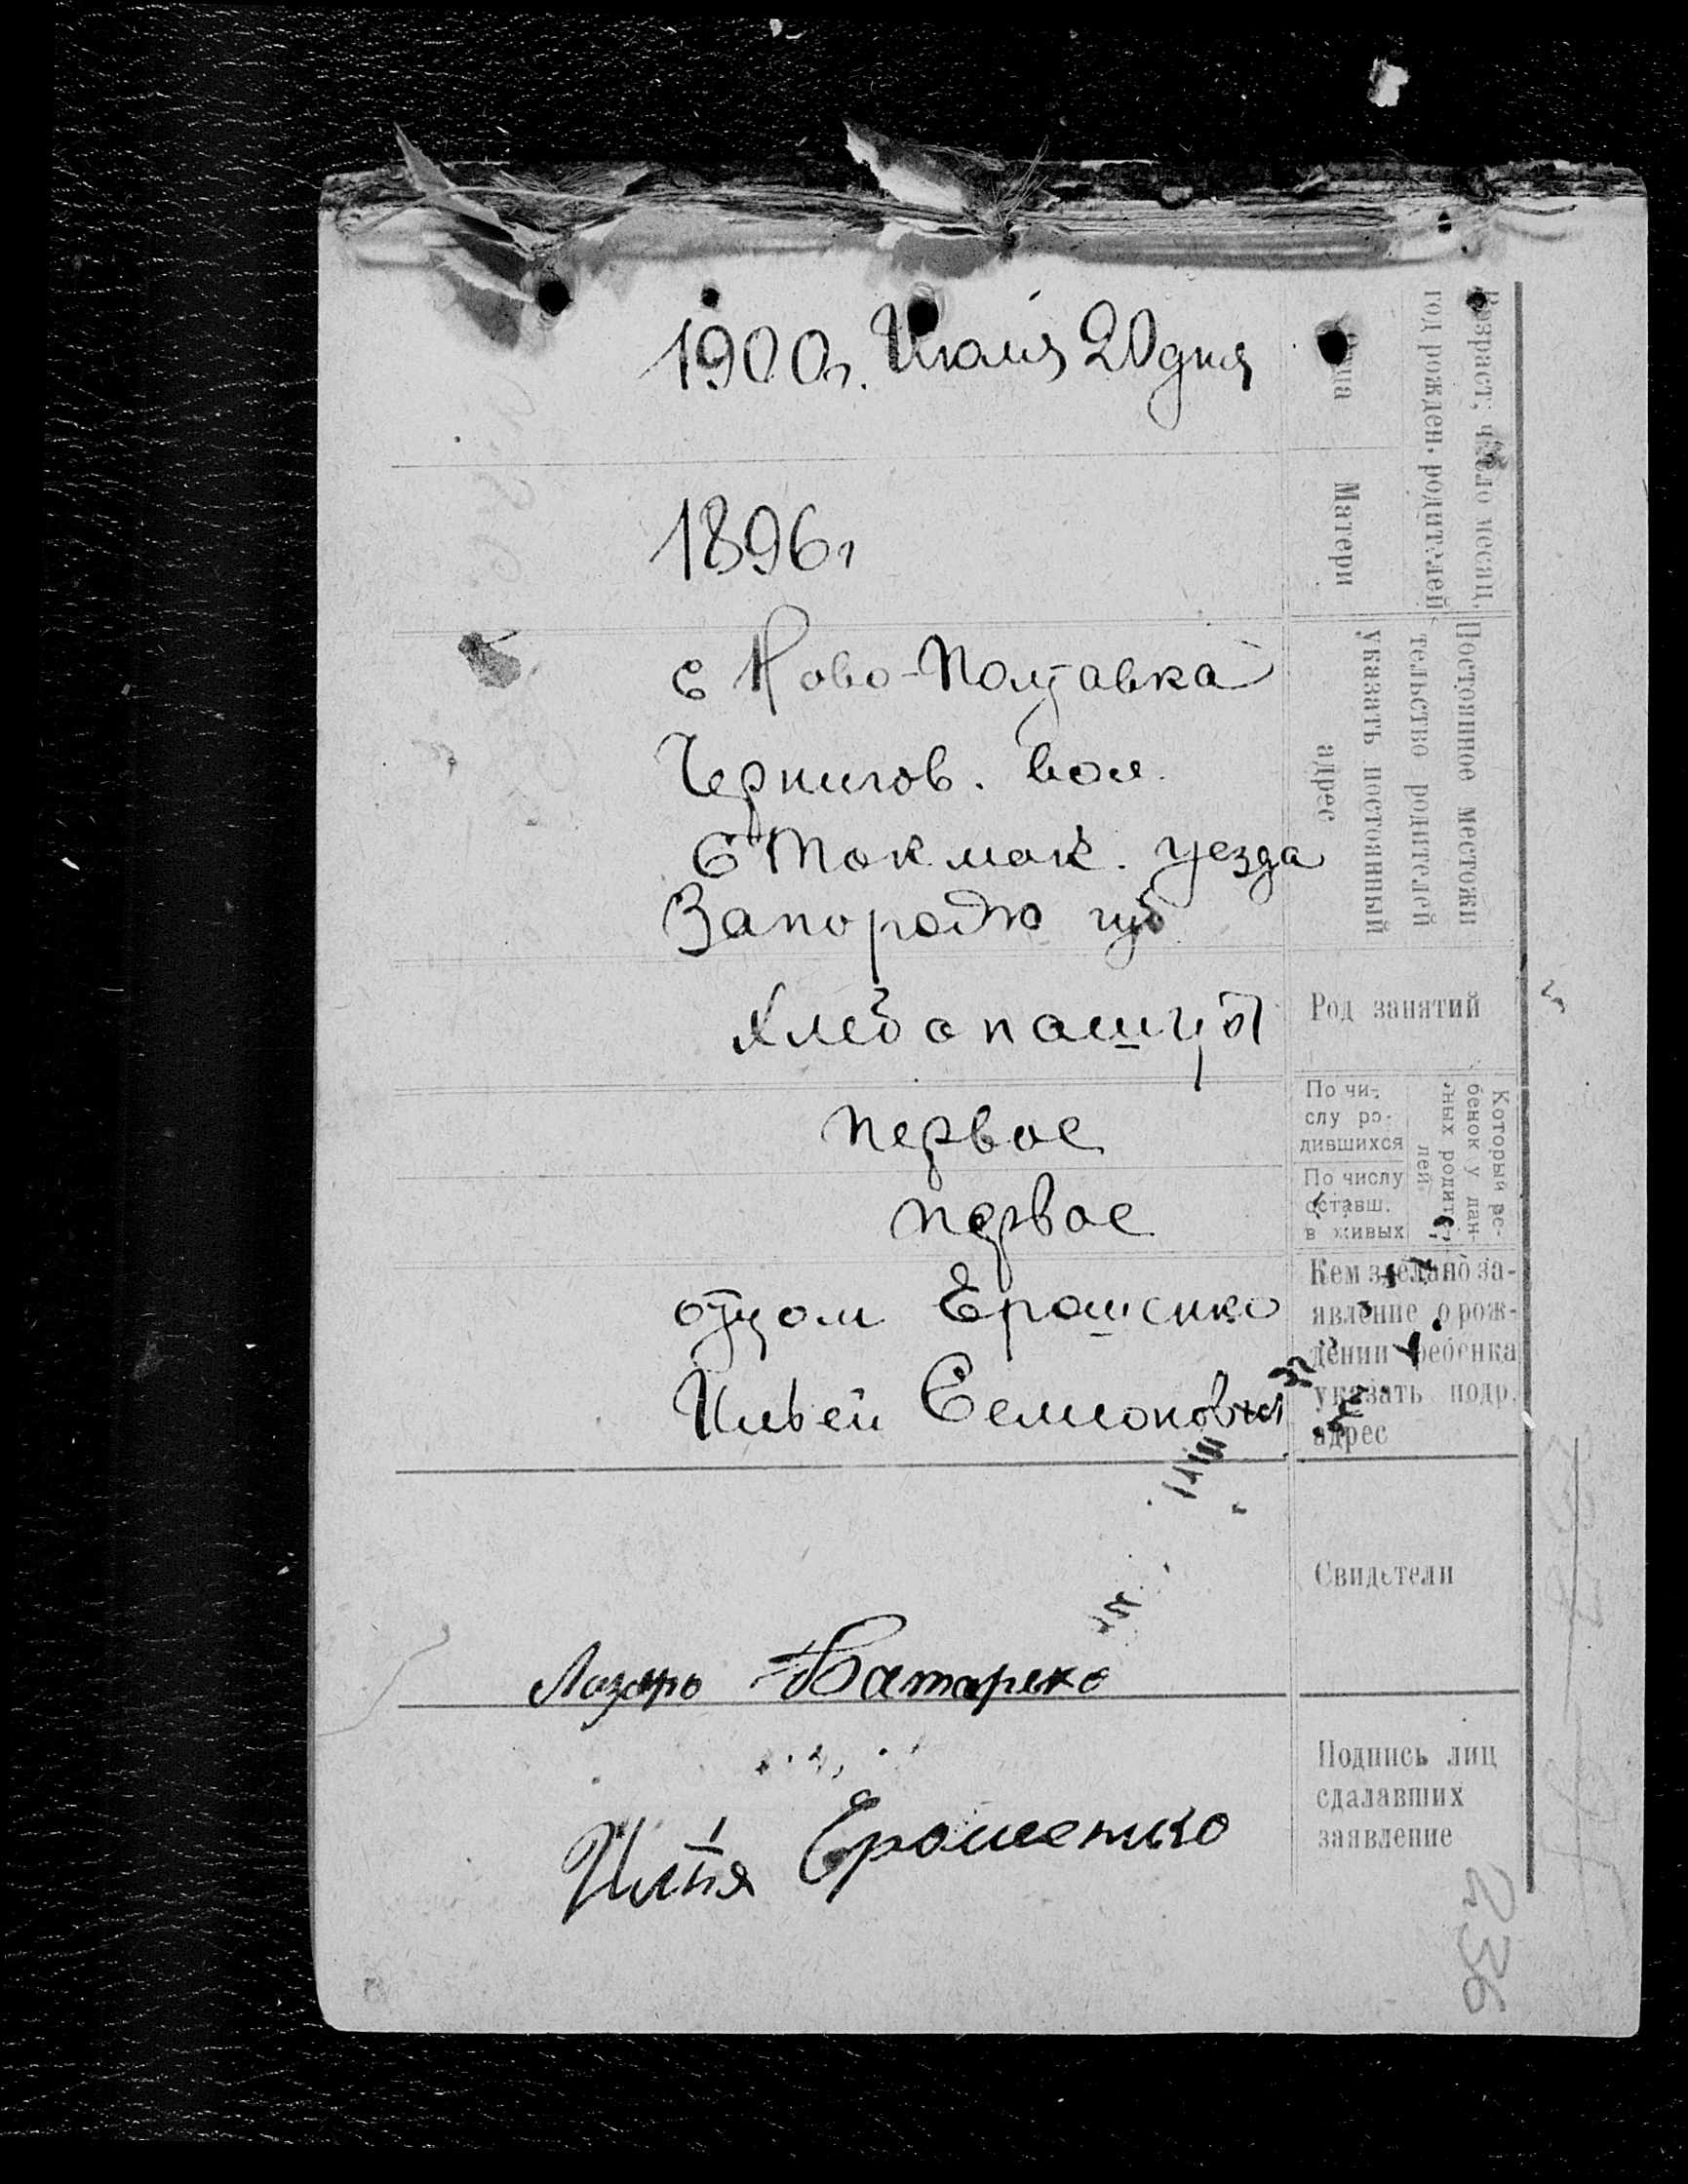 Возраст, число месяц,
год рожден. родителей
Отца
1900 г. Июля 20 дня
Матери
1896 г
Постоянное местожи
тельство родителей
указать постоянный
адрес
с Ново-Полтавка
Чернигов. вол.
Б Токмак. уезда
Запорож губ
Род занятий
Хлебопашцы
Который ре-
бенок у дан-
ных родите-
лей
По чи-
слу ро-
дившихся
первое
По числу
оставш.
в живых
первое
Кем зделано за-
явление о рож-
дении ребенка
указать подр.
адрес
отцом Ерошенко
Ильей Семионович
Свидетели
Лазарь
Подпись лиц
сдалавших
заявление
Илья Ерошенко
236